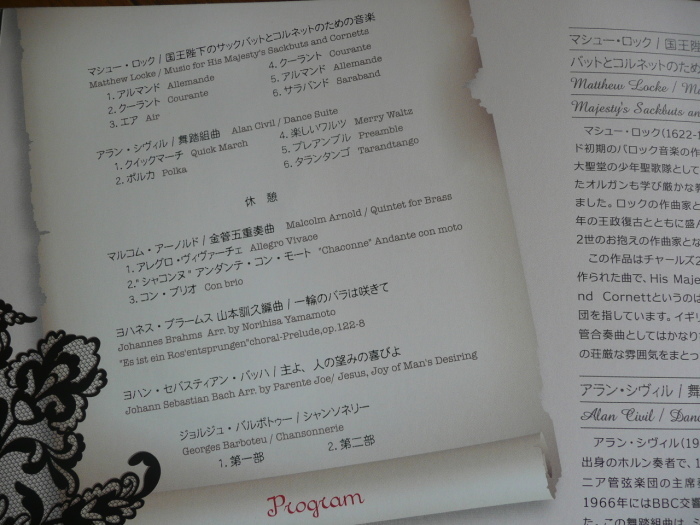 マシュー・ロック / 国王陛下のサックバットとコルネットのための音楽
Matthew Locke / Music for His Majesty's Sackbuts and Cornetts
1. アルマンド Allemande
2. クーラント Courante
3. エア Air
4. クーラント Courante
5. アルマンド Allemande
6. サラバンド Saraband
アラン・シヴィル / 舞踏組曲 Alan Civil / Dance Suite
1. クイックマーチ Quick March
2. ポルカ Polka
4. 楽しいワルツ Merry Waltz
5. プレアンブル Preamble
6. タランタンゴ Tarandtango
休 憩
マルコム・アーノルド / 金管五重奏曲 Malcolm Arnold / Quintet for Brass
1. アレグロ・ヴィヴァーチェ Allegro Vivace
2." シャコンヌ" アンダンテ・コン・モート "Chaconne" Andante con moto
3. コン・ブリオ Con brio
ヨハネス・ブラームス 山本訓久編曲 / 一輪のバラは咲きて
Johannes Brahms Arr. by Norihisa Yamamoto
"Es ist ein Ros'entsprungen"choral-Prelude,op.122-8
ヨハン・セバスティアン・バッハ / 主よ、人の望みの喜びよ
Johann Sebastian Bach Arr. by Parente Joe/ Jesus, Joy of Man's Desiring
ジョルジュ・バルボトゥー / シャンソネリー
Georges Barboteu / Chansonnerie
1. 第一部 2. 第二部
Program
マシュー・ロック / 国王陛
バットとコルネットのため
Matthew Locke / Mu
Majesty's Sackbuts an
マシュー・ロック(1622-1
ド初期のバロック音楽の作
大聖堂の少年聖歌隊として
たオルガンも学び厳かな
ました。ロックの作曲家と
年の王政復古とともに盛ん
2世のお抱えの作曲家とな
この作品はチャールズ2
作られた曲で、His Maje
nd Cornettというのは
団を指しています。イギリ
管合奏曲としてはかなり
の荘厳な雰囲気をまとっ
アラン・シヴィル / 舞
Alan Civil / Danc
アラン・シヴィル(19
出身のホルン奏者で、1
ニア管弦楽団の主席
1966年にはBBC交響
た。この舞踏組曲は、